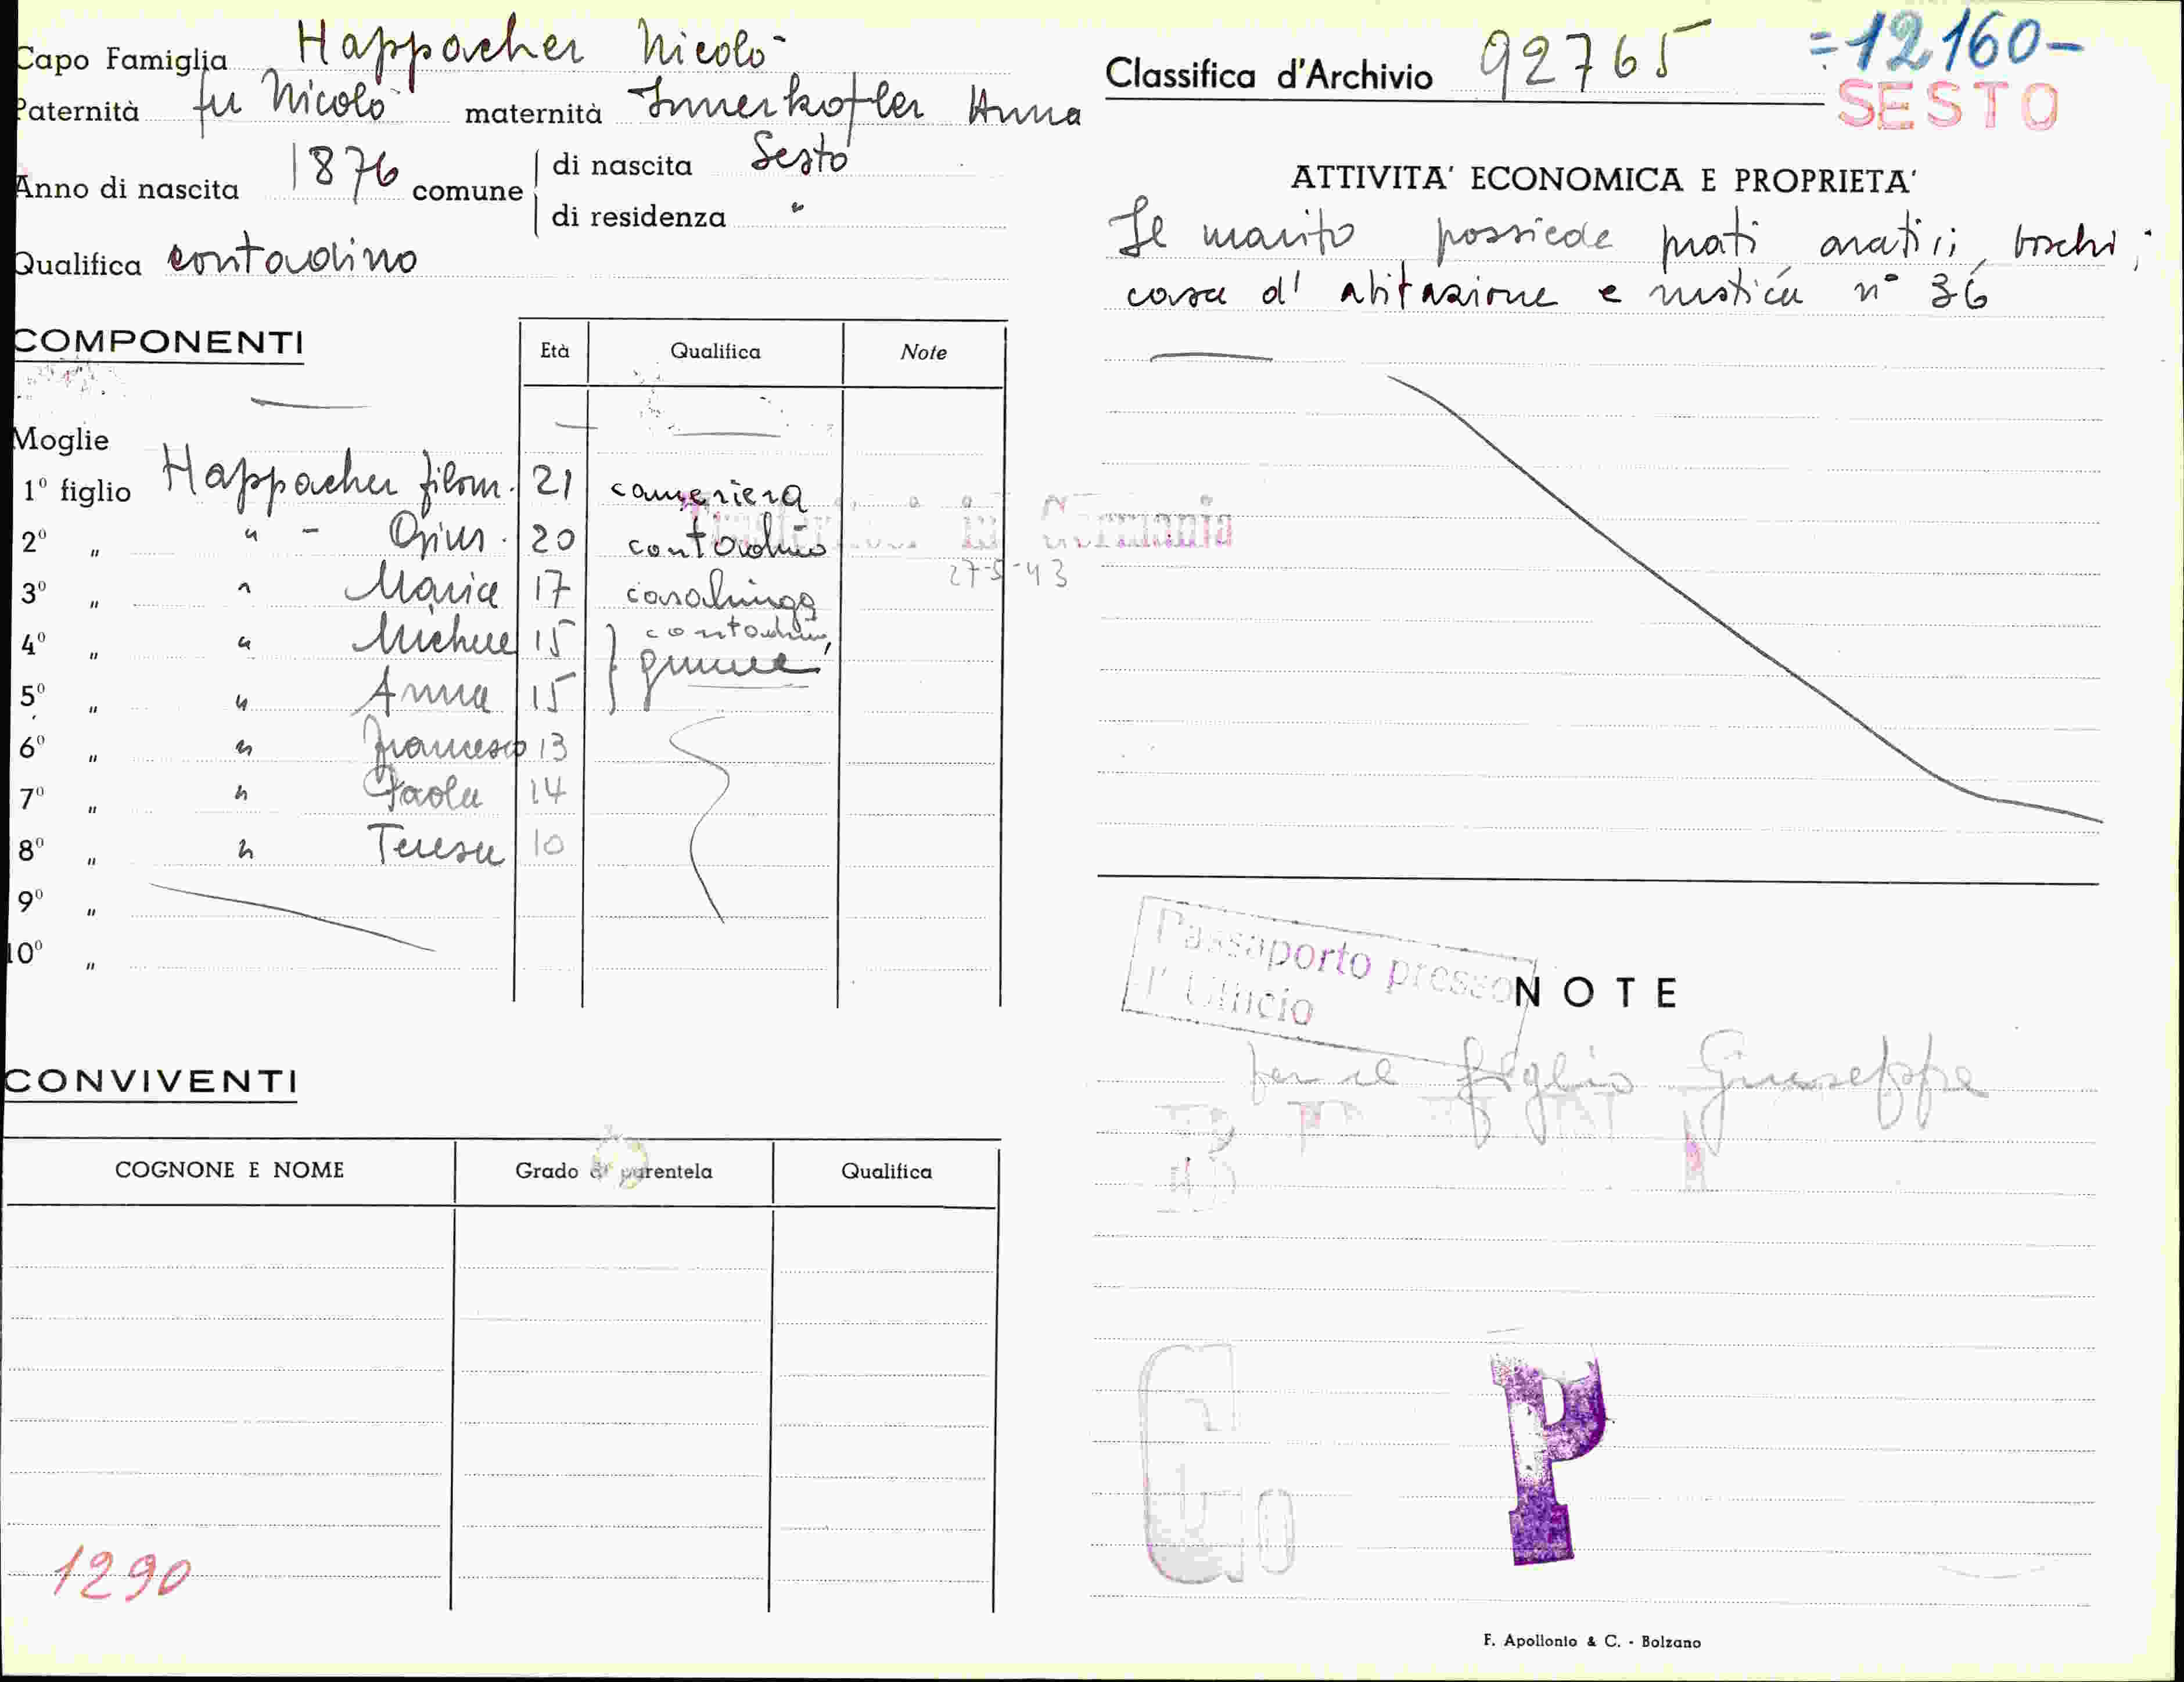 Capo Famiglia Happacher Nicolò
Paternità fu Nicolò maternità Innerkofler Anna
Anno di nascita 1876 comune di nascita Sesto
di residenza "
Qualifica contadino
COMPONENTI Età Qualifica Note
Moglie
1º figlio Happacher Filom. 21 cameriera
2º " " - 20 contadino
3º " " Maria 17 casalinga
4º " " Michele 15 contadino
5º " " Anna 15
6º " " Francesco 13
7º " " Paola 14
8º " " Teresa 10
9º "
10º "
in Germania
27-5-43
CONVIVENTI
COGNONE E NOME Grado di parentela Qualifica
1290
Classifica d'Archivio 92765
=12160-
SESTO
ATTIVITA' ECONOMICA E PROPRIETA'
Il marito possiede prati arativi, boschi;
casa d'abitazione e rustica nº 36
Passaporto presso
l'Ufficio
NOTE
per il figlio Giuseppe
P
F. Apollonio & C. - Bolzano